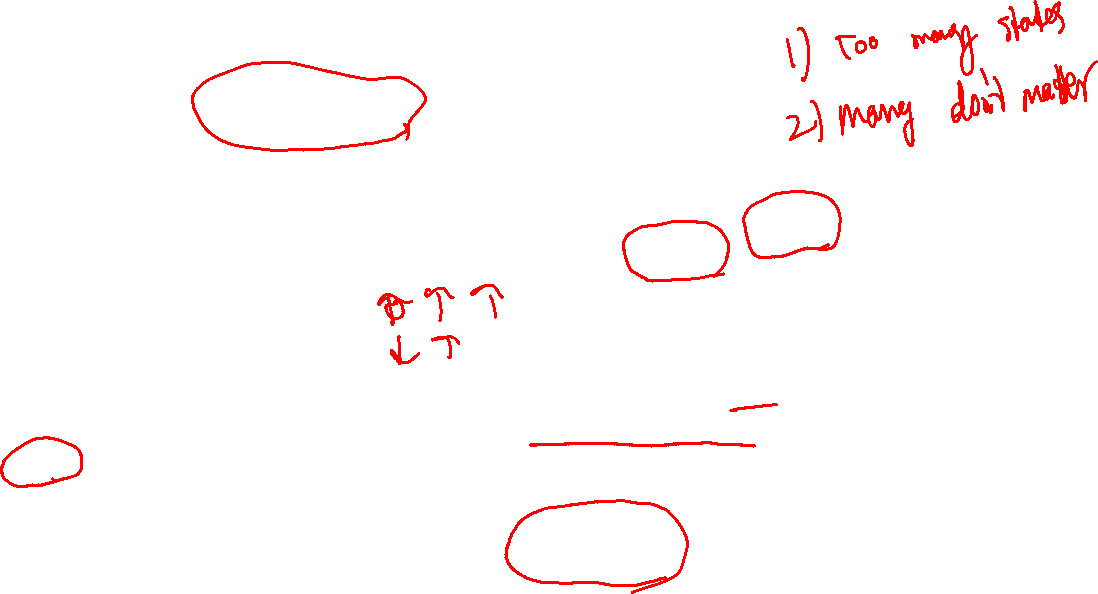 1) Too many states
2) Many don't matter
↑ ↑ ↑
↓ ↑